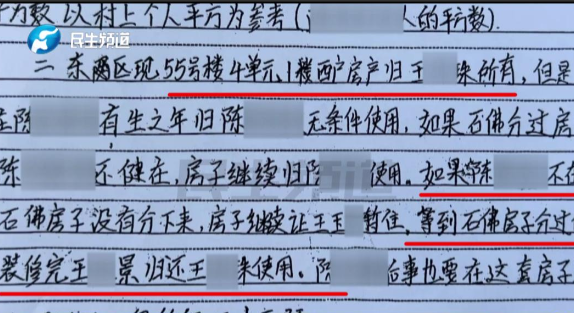 为数,以村上个人平方为参考(人的平方数).
民生频道
二、东西区现,55号楼4单元,1楼西户房产归王珠所有,但是
陈有生之年归陈无条件使用,如果石佛分过房
陈还健在,房子继续归陈使用。如果陈不在
石佛房子没有分下来,房子继续让王王暂住,等到石佛房子分过
装修完王景归还王珠使用。陈后事也要在这套房子